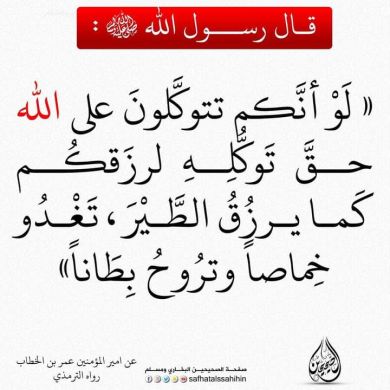 قال رسول الله ﷺ :
« لَوْ أنَّكم تتوكَّلونَ على الله
حقَّ تَوكُّلِهِ لرزَقكُم
كَما يرزُقُ الطَّيْرَ، تَغْدُو
خِماصاً وتَرُوحُ بِطَاناً»
عن امير المؤمنين عمر بن الخطاب
رواه الترمذي
صفحة الصحيحين البخاري ومسلم
safhatalssahihin